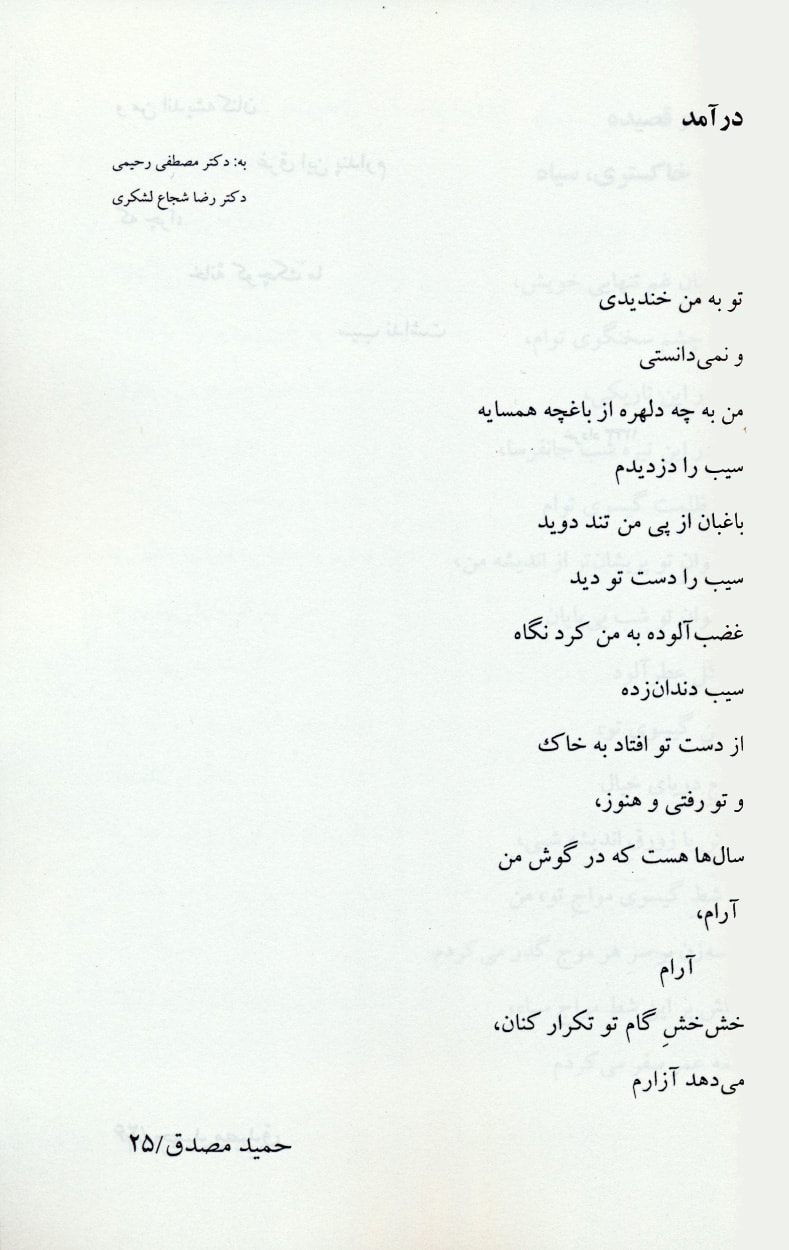 درآمد
به: دکتر مصطفی رحیمی
دکتر رضا شجاع لشکری
تو به من خندیدی
و نمی‌دانستی
من به چه دلهره از باغچه همسایه
سیب را دزدیدم
باغبان از پی من تند دوید
سیب را دست تو دید
غضب‌آلوده به من کرد نگاه
سیب دندان‌زده
از دست تو افتاد به خاک
و تو رفتی و هنوز،
سال‌ها هست که در گوش من
آرام،
آرام
خش‌خشِ گام تو تکرار کنان،
می‌دهد آزارم
حمید مصدق/۲۵